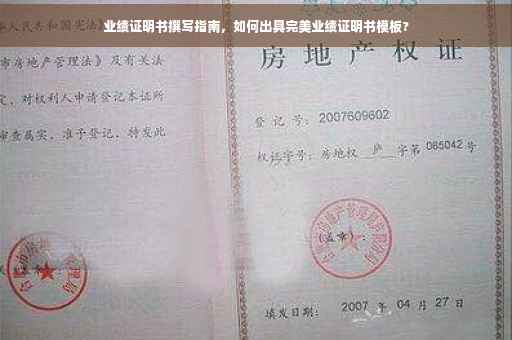 业绩证明书撰写指南，如何出具完美业绩证明书模板？
人民共和国宪法
市房地产管理法》及有关法
定，对权利人申请登记本证所
审查属实，准予登记，特发此
房地产权证
登记号：2007609602
权证字号：房地权 庐 字第 085042 号
(盖章)：
填发日期：2007 年 04 月 27 日